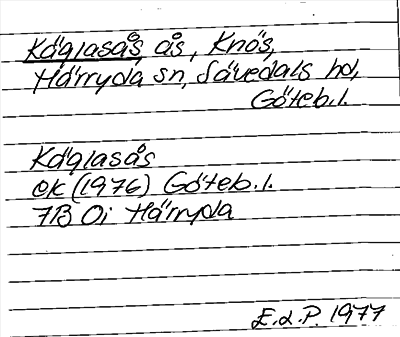 Käglasås, ås, Knös,
Härryda sn, Sävedals hd,
Göteb.l.
Käglasås
ek (1976) Göteb.l.
7B 0i Härryda
E.d.P. 1977